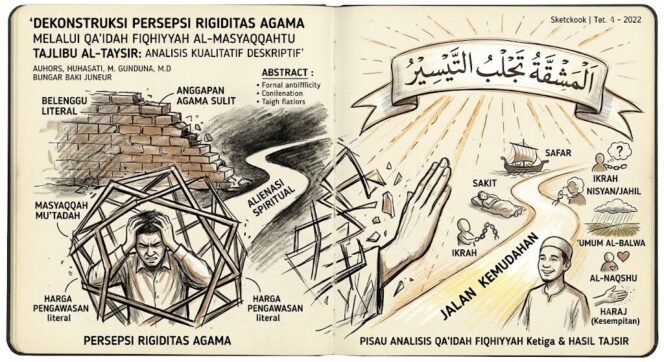 'DEKONSTRUKSI PERSEPSI RIGIDITAS AGAMA
MELALUI QA'IDAH FIQHIYYAH AL-MASYAQQAHTU
TAJLIBU AL-TAYSIR: ANALISIS KUALITATIF DESKRIPTIF'
AUHORS, HUHASATI, M. GUNDUNA, M.D
BUNGAR BAKI JUNEUR
ABSTRACT :
• Fornal antifificity
• Conilenation
• Taigh flatiors
BELENGGU
LITERAL
ANGGAPAN
AGAMA SULIT
ALIENASI
SPIRITUAL
MASYAQQAH
MU'TADAH
HARGA
PENGAWASAN
literal
HARGA
PENGAWASAN
literal
PERSEPSI RIGIDITAS AGAMA
Sketckook | Tet. 4 - 2022
اَلْمَشَقَّةُ تَجْلُبُ التَّيْسِيْرَ
SAFAR
SAKIT
IKRAH
IKRAH
NISYAN/JAHIL
'UMUM AL-BALWA
AL-NAQSHU
HARAJ
(Kesempitan)
JALAN KEMUDAHAN
PISAU ANALISIS QA'IDAH FIQHIYYAH Ketiga & HASIL TAJSIR